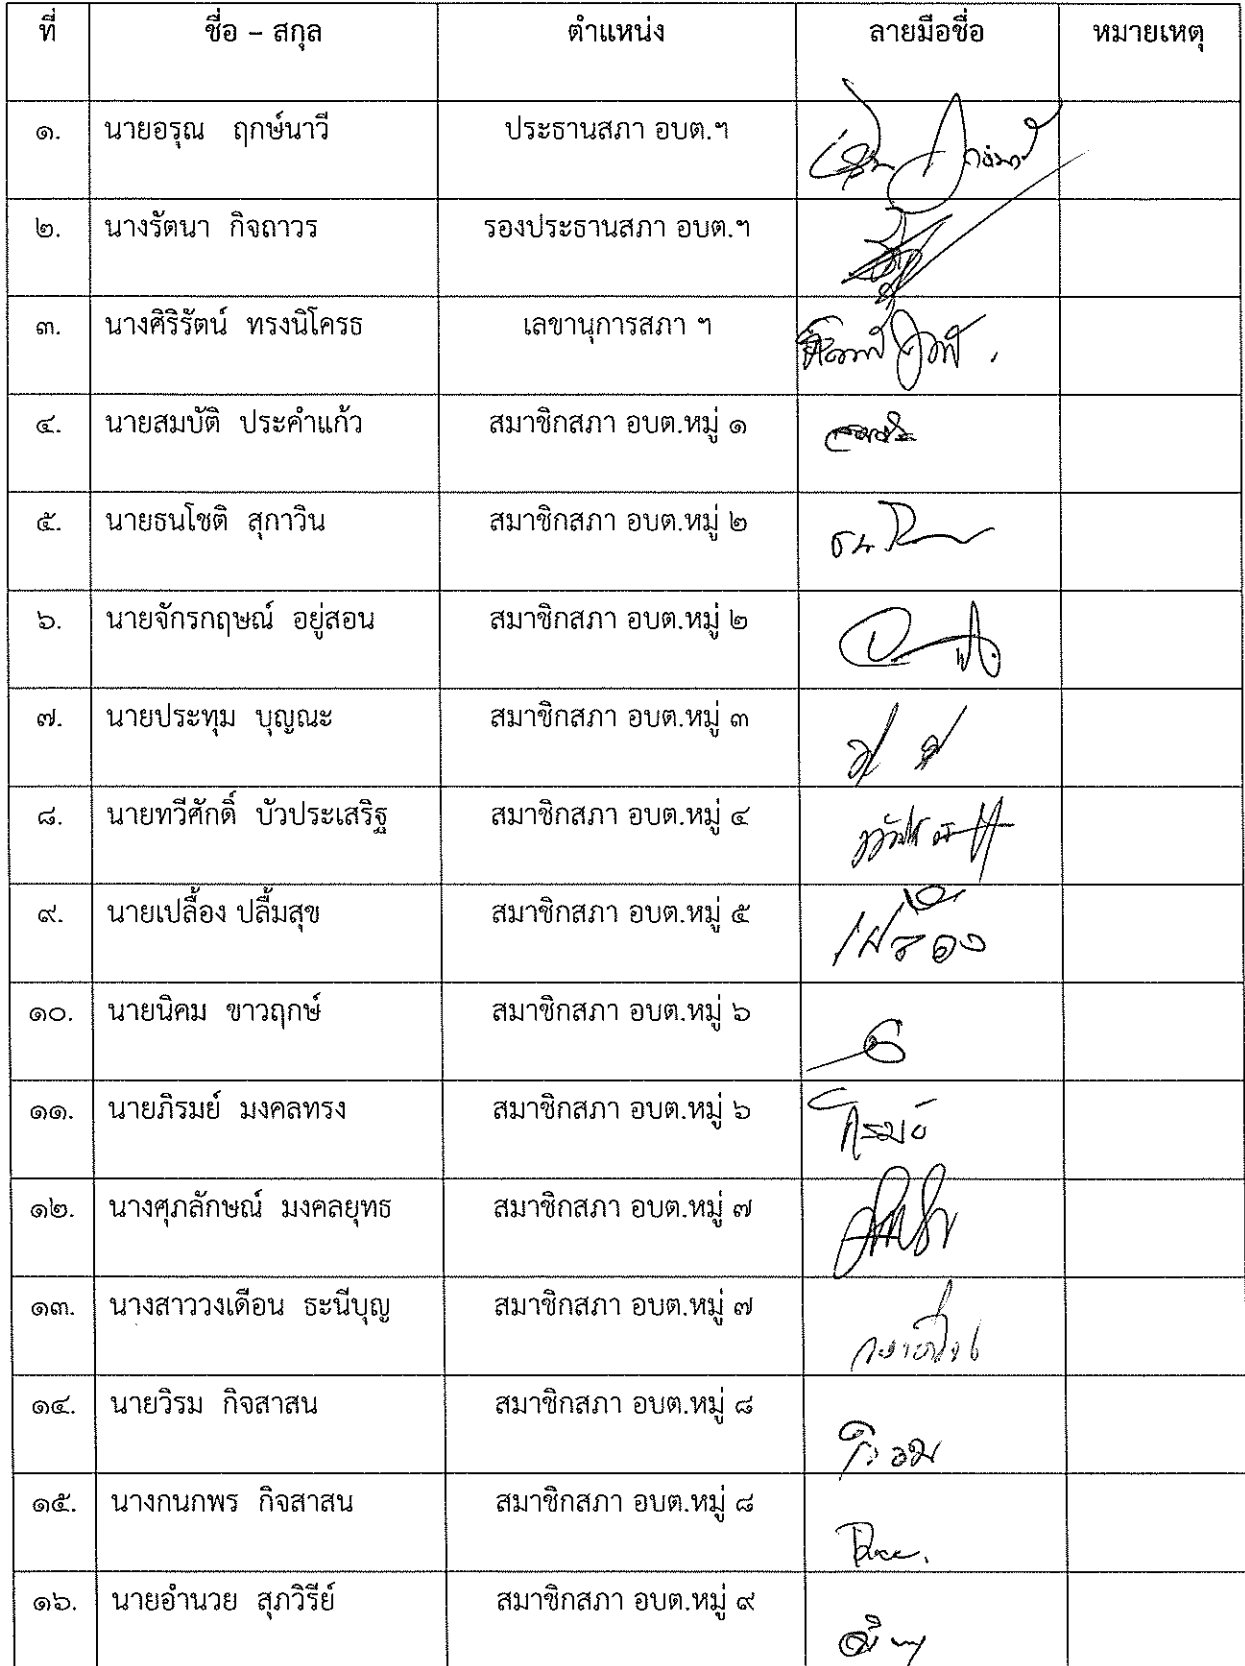 ที่ ชื่อ – สกุล ตำแหน่ง ลายมือชื่อ หมายเหตุ
๑. นายอรุณ ฤกษ์นาวี ประธานสภา อบต.ฯ
๒. นางรัตนา กิจถาวร รองประธานสภา อบต.ฯ
๓. นางศิริรัตน์ ทรงนิโครธ เลขานุการสภา ฯ
๔. นายสมบัติ ประคำแก้ว สมาชิกสภา อบต.หมู่ ๑
๕. นายธนโชติ สุกาวิน สมาชิกสภา อบต.หมู่ ๒
๖. นายจักรกฤษณ์ อยู่สอน สมาชิกสภา อบต.หมู่ ๒
๗. นายประทุม บุญณะ สมาชิกสภา อบต.หมู่ ๓
๘. นายทวีศักดิ์ บัวประเสริฐ สมาชิกสภา อบต.หมู่ ๔
๙. นายเปลื้อง ปลื้มสุข สมาชิกสภา อบต.หมู่ ๕ เปลื้อง
๑๐. นายนิคม ขาวฤกษ์ สมาชิกสภา อบต.หมู่ ๖
๑๑. นายภิรมย์ มงคลทรง สมาชิกสภา อบต.หมู่ ๖ ภิรมย์
๑๒. นางศุภลักษณ์ มงคลยุทธ สมาชิกสภา อบต.หมู่ ๗
๑๓. นางสาววงเดือน ธะนีบุญ สมาชิกสภา อบต.หมู่ ๗
๑๔. นายวิรม กิจสาสน สมาชิกสภา อบต.หมู่ ๘
๑๕. นางกนกพร กิจสาสน สมาชิกสภา อบต.หมู่ ๘
๑๖. นายอำนวย สุภวิรีย์ สมาชิกสภา อบต.หมู่ ๙